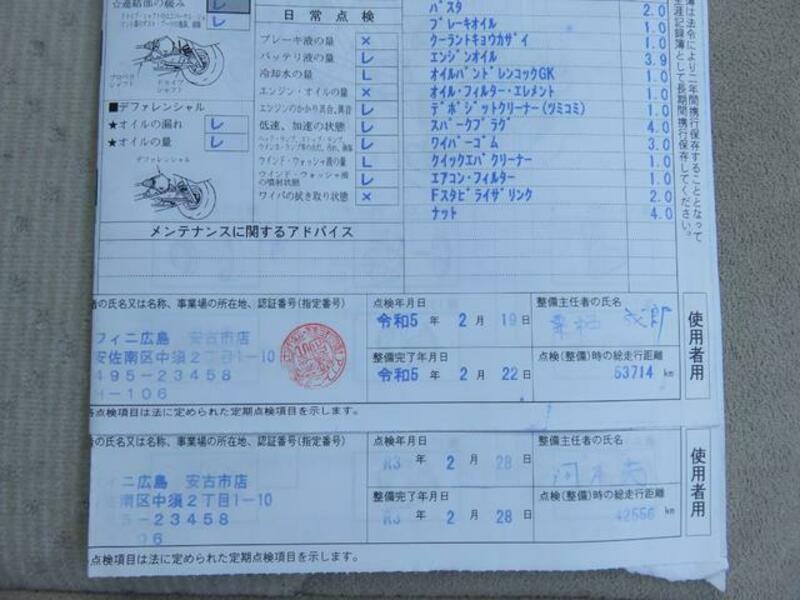 ☆連結部の緩み レ
日常点検
ブレーキ液の量 ×
バッテリ液の量 レ
冷却水の量 L
エンジン・オイルの量 ×
エンジンのかかり具合、異音 レ
低速、加速の状態 レ
ウインド・ウォッシャ液の量 L
ウインド・ウォッシャ液の噴射状態 レ
ワイパの拭き取り状態 ×
プロペラシャフト
ドライブシャフト
■デファレンシャル
★オイルの漏れ レ
★オイルの量 レ
デファレンシャル
バスタ 2.0
ブレーキオイル 1.0
クーラントキョウカザイ 1.0
エンジンオイル 3.9
オイルパンドレンコックGK 1.0
オイル・フィルター・エレメント 1.0
デポジットクリーナー(ツミコミ) 1.0
スパークプラグ 4.0
ワイパーゴム 3.0
クイックエバクリーナー 1.0
エアコン・フィルター 1.0
Fスタビライザリンク 2.0
ナット 4.0
簿は法令により二年間携行保存することとなって
生涯記録簿として長期間携行保存してください。
メンテナンスに関するアドバイス
者の氏名又は名称、事業場の所在地、認証番号(指定番号)
フィニ広島 安古市店
安佐南区中須2丁目1-10
495-23458
H-106
点検年月日
令和5年 2月 19日
整備完了年月日
令和5年 2月 22日
整備主任者の氏名
点検(整備)時の総走行距離
53714 km
使用者用
点検項目は法に定められた定期点検項目を示します。
者の氏名又は名称、事業場の所在地、認証番号(指定番号)
ィニ広島 安古市店
佐南区中須2丁目1-10
5-23458
06
点検年月日
R3年 2月 28日
整備完了年月日
R3年 2月 28日
整備主任者の氏名
点検(整備)時の総走行距離
42556 km
使用者用
点検項目は法に定められた定期点検項目を示します。